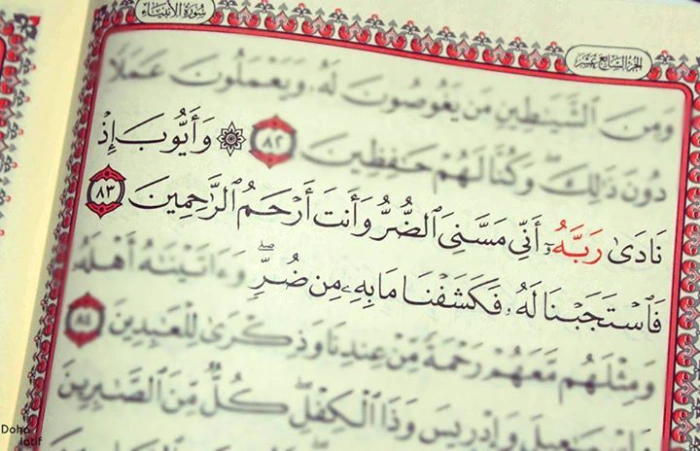 سُورَةُ الأَنبِيَاءِ
الجُزْءُ السَّابِعَ عَشَرَ
وَمِنَ ٱلشَّيَٰطِينِ مَن يَغُوصُونَ لَهُۥ وَيَعْمَلُونَ عَمَلًا
دُونَ ذَٰلِكَۖ وَكُنَّا لَهُمْ حَٰفِظِينَ ٨٢ ۞ وَأَيُّوبَ إِذْ
نَادَىٰ رَبَّهُۥٓ أَنِّي مَسَّنِيَ ٱلضُّرُّ وَأَنتَ أَرْحَمُ ٱلرَّٰحِمِينَ ٨٣
فَٱسْتَجَبْنَا لَهُۥ فَكَشَفْنَا مَا بِهِۦ مِن ضُرٍّۖ وَءَاتَيْنَٰهُ أَهْلَهُۥ
وَمِثْلَهُم مَّعَهُمْ رَحْمَةً مِّنْ عِندِنَا وَذِكْرَىٰ لِلْعَٰبِدِينَ ٨٤
وَإِسْمَٰعِيلَ وَإِدْرِيسَ وَذَا ٱلْكِفْلِۖ كُلٌّ مِّنَ ٱلصَّٰبِرِينَ
Doha
latif